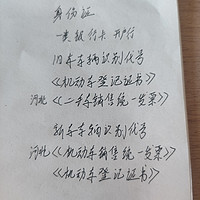 身份证
一类银行卡 开户行
旧车车辆识别代号
《机动车登记证书》
河北《二手车销售统一发票》
新车车辆识别代号
河北《机动车销售统一发票》
《机动车登记证书》